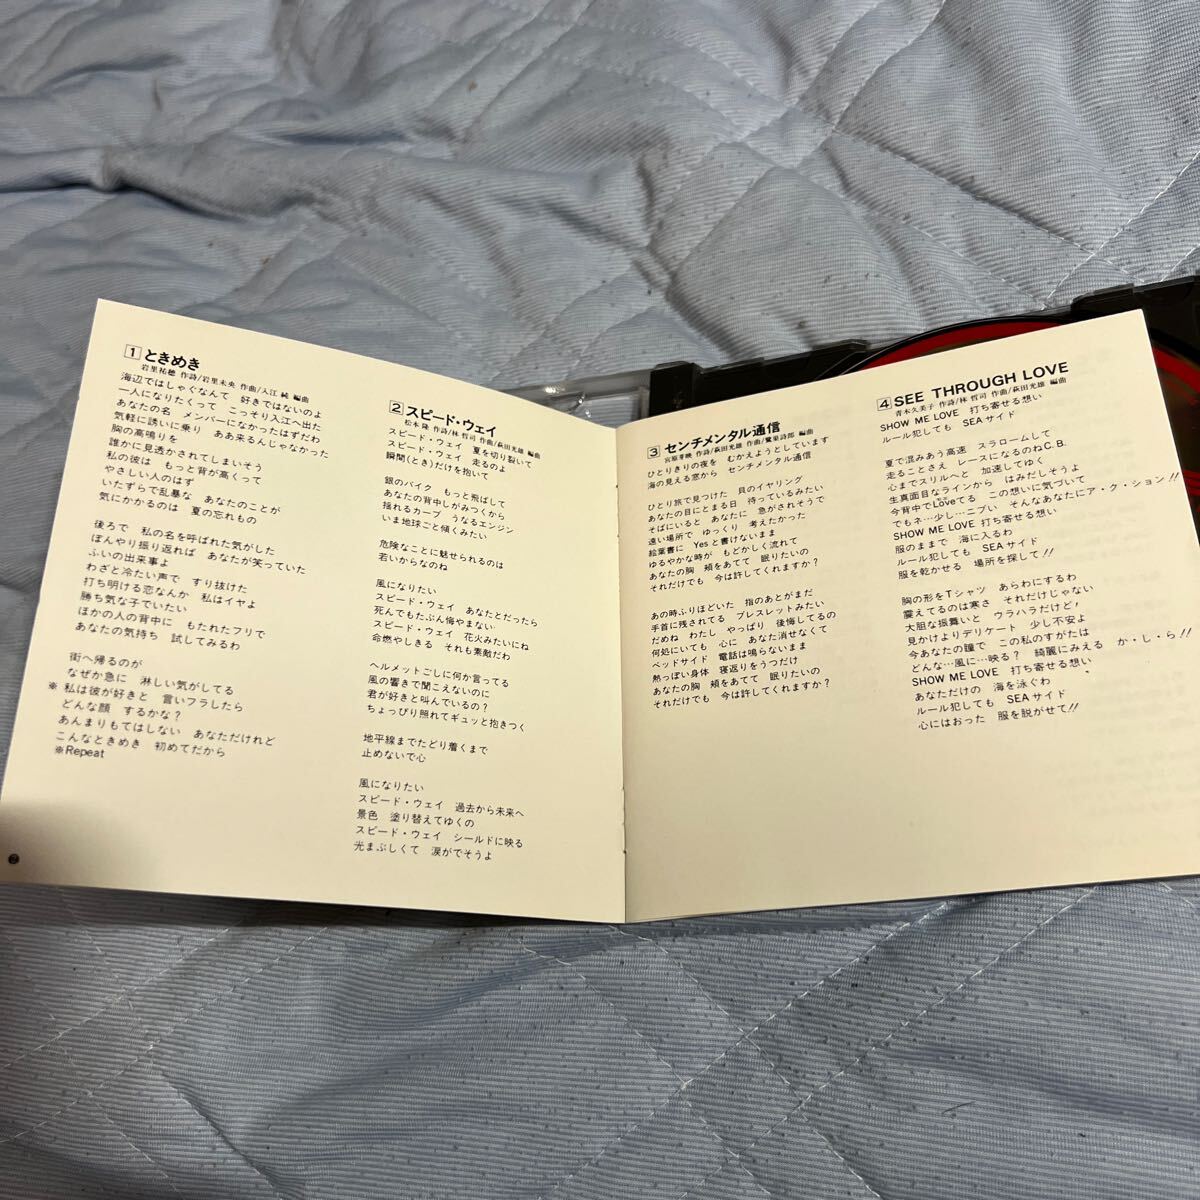 1 ときめき
岩里祐穂 作詩/岩里未央 作曲/入江 純 編曲
海辺ではしゃぐなんて 好きではないのよ
一人になりたくって こっそり入江へ出た
あなたの名 メンバーになかったはずだわ
気軽に誘いに乗り ああ来るんじゃなかった
胸の高鳴りを
誰かに見透かされてしまいそう
私の彼は もっと背が高くって
やさしい人のはず
いたずらで乱暴な あなたのことが
気にかかるのは 夏の忘れもの
後ろで 私の名を呼ばれた気がした
ぼんやり振り返れば あなたが笑っていた
ふいの出来事よ
わざと冷たい声で すり抜けた
打ち明ける恋なんか 私はイヤよ
勝ち気な子でいたい
ほかの人の背中に もたれたフリで
あなたの気持ち 試してみるわ
街へ帰るのが
なぜか急に 淋しい気がしてる
※ 私は彼が好きと 言いフラしたら
どんな顔 するかな?
あんまりもてはしない あなただけれど
こんなときめき 初めてだから
※Repeat
2 スピード・ウェイ
松本 隆 作詩/林 哲司 作曲/萩田光雄 編曲
スピード・ウェイ 夏を切り裂いて
スピード・ウェイ 走るのよ
瞬間(とき)だけを抱いて
銀のバイク もっと飛ばして
あなたの背中しがみつくから
揺れるカーブ うなるエンジン
いま地球ごと傾くみたい
危険なことに魅せられるのは
若いからなのね
風になりたい
スピード・ウェイ あなたとだったら
死んでもたぶん悔やまない
スピード・ウェイ 花火みたいにね
命燃やしきる それも素敵だわ
ヘルメットごしに何か言ってる
風の響きで聞こえないのに
君が好きと叫んでいるの?
ちょっぴり照れてギュッと抱きつく
地平線までたどり着くまで
止めないで心
風になりたい
スピード・ウェイ 過去から未来へ
景色 塗り替えてゆくの
スピード・ウェイ シールドに映る
光まぶしくて 涙がでそうよ
2
3 センチメンタル通信
宮原芽映 作詩/萩田光雄 作曲/鷺巣詩郎 編曲
ひとりきりの夜を むかえようとしています
海の見える窓から センチメンタル通信
ひとり旅で見つけた 貝のイヤリング
あなたの目にとまる日 待っているみたい
そばにいると あなたに 急がされそうで
遠い場所で ゆっくり 考えたかった
絵葉書に Yesと書けないまま
ゆるやかな時が もどかしく流れて
あなたの胸 頬をあてて 眠りたいの
それだけでも 今は許してくれますか?
あの時ふりほどいた 指のあとがまだ
手首に残されてる ブレスレットみたい
だめね わたし やっぱり 後悔してるの
何処にいても 心に あなた消せなくて
ベッドサイド 電話は鳴らないまま
熱っぽい身体 寝返りをうつだけ
あなたの胸 頬をあてて 眠りたいの
それだけでも 今は許してくれますか?
4 SEE THROUGH LOVE
青木久美子 作詩/林 哲司 作曲/萩田光雄 編曲
SHOW ME LOVE 打ち寄せる想い
ルール犯しても SEAサイド
夏で混みあう高速 スラロームして
走ることさえ レースになるのねC.B.
心までスリルへと 加速してゆく
生真面目なラインから はみだしそうよ
今背中でLoveてる この想いに気づいて
でもネ…少し…ニブい そんなあなたにア・ク・ション!!
SHOW ME LOVE 打ち寄せる想い
服のままで 海に入るわ
ルール犯しても SEAサイド
服を乾かせる 場所を探して!!
胸の形をTシャツ あらわにするわ
震えてるのは寒さ それだけじゃない
大胆な振舞いと ウラハラだけど
見かけよりデリケート 少し不安よ
今あなたの瞳で この私のすがたは
どんな…風に…映る? 綺麗にみえる か・し・ら!!
SHOW ME LOVE 打ち寄せる想い
あなただけの 海を泳ぐわ
ルール犯しても SEAサイド
心にはおった 服を脱がせて!!